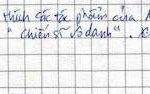 thích các tác phẩm của
" chiến sĩ vô danh".